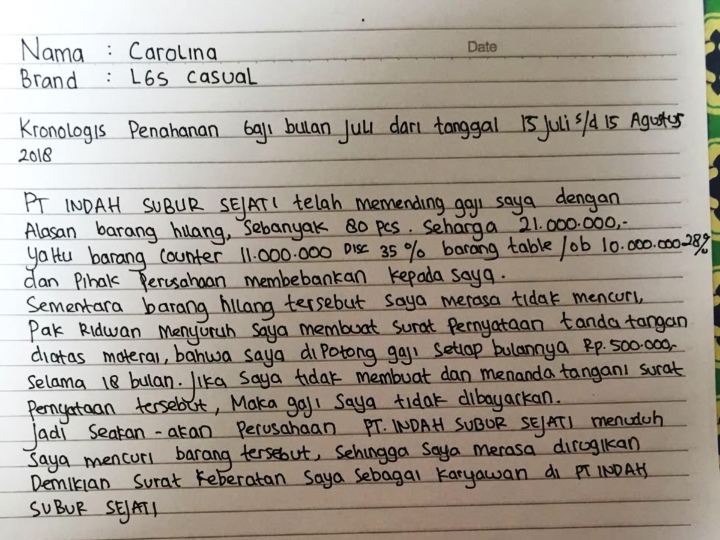 Date
Nama : Carolina
Brand : LGS Casual
Kronologis Penahanan Gaji bulan Juli dari tanggal 15 Juli s/d 15 Agustus
2018
PT INDAH SUBUR SEJATI telah memending gaji saya dengan
Alasan barang hilang, Sebanyak 80 pcs. Seharga 21.000.000,-
Yaitu barang Counter 11.000.000 Disc 35% barang table/ob 10.000.000 28%
dan Pihak Perusahaan membebankan kepada saya.
Sementara barang hilang tersebut saya merasa tidak mencuri,
Pak Ridwan Menyuruh saya membuat surat Pernyataan tanda tangan
diatas materai, bahwa saya di Potong gaji setiap bulannya Rp. 500.000,-
Selama 18 bulan. Jika saya tidak membuat dan menanda tangani surat
Pernyataan tersebut, Maka gaji saya tidak dibayarkan.
Jadi Seakan-akan Perusahaan PT. INDAH SUBUR SEJATI menuduh
Saya mencuri barang tersebut, Sehingga saya merasa dirugikan
Demikian Surat Keberatan saya Sebagai Karyawan di PT INDAH
SUBUR SEJATI